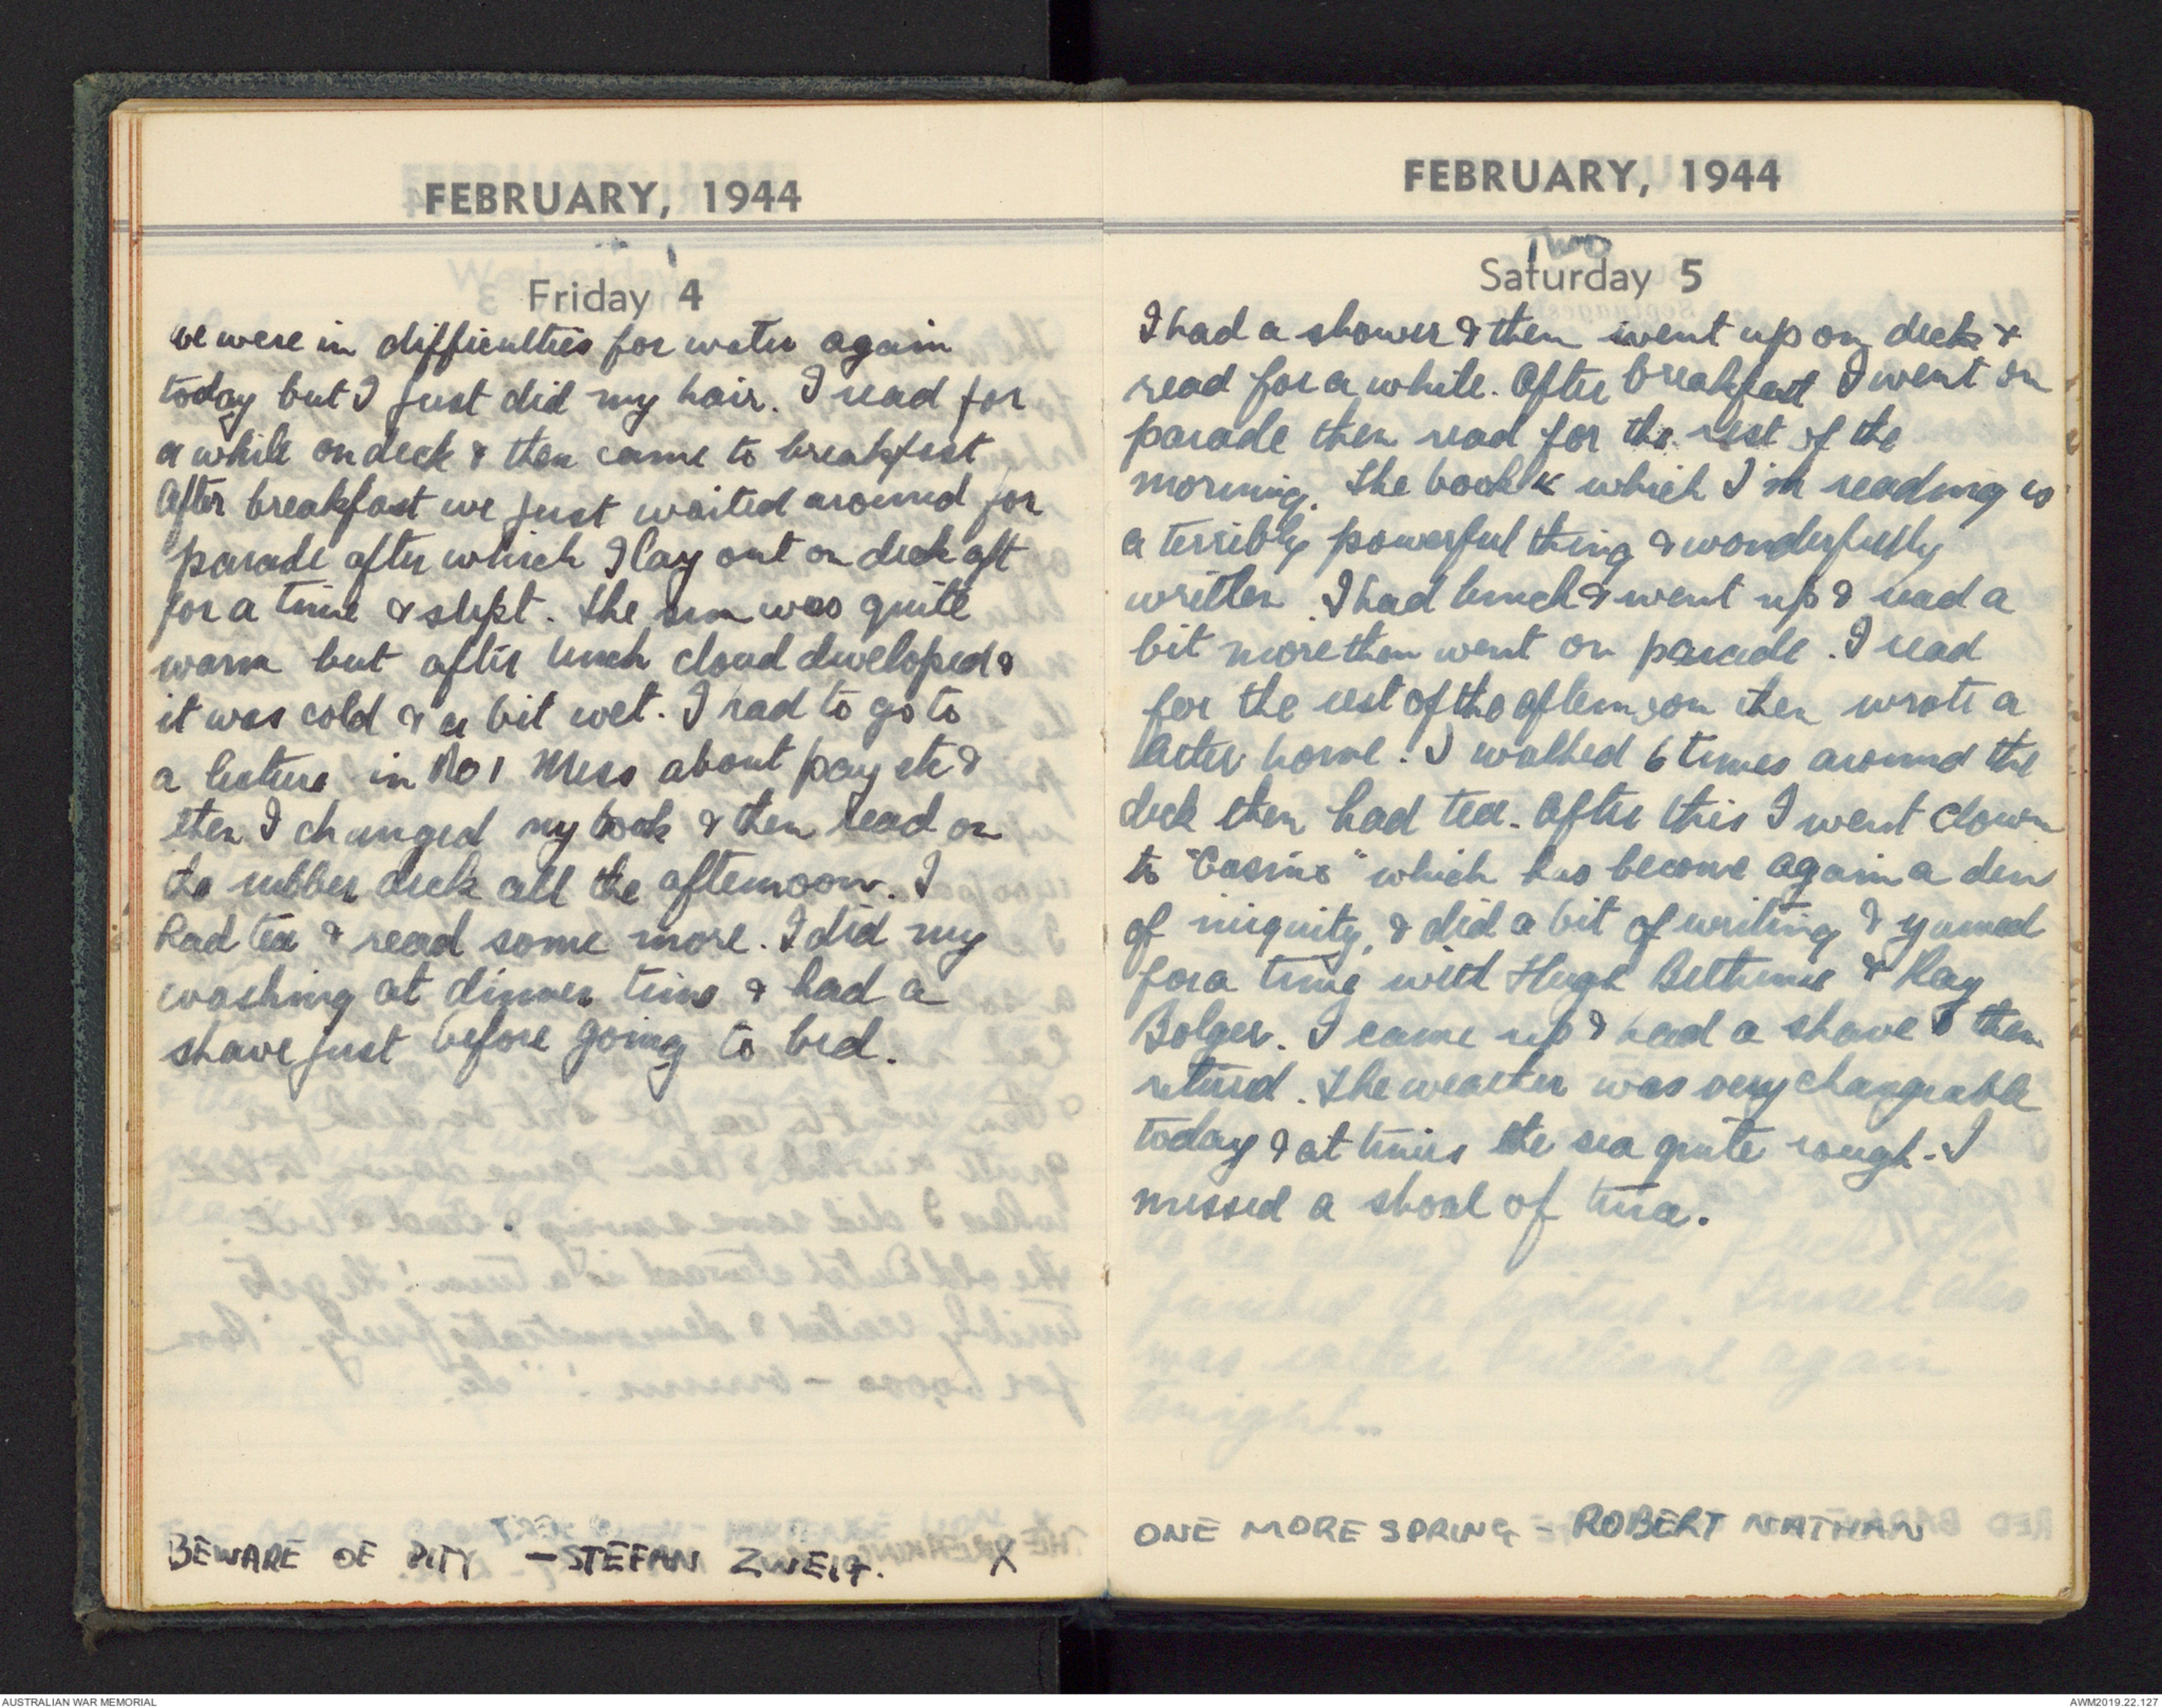 FEBRUARY, 1944
Friday 4
We were in difficulties for water again
today but I just did my hair. I read for
a while on deck & then came to breakfast
After breakfast we just waited around for
parade after which I lay out on deck aft
for a time & slept. The sun was quite
warm but after lunch cloud developed &
it was cold & a bit wet. I had to go to
a lecture in No 1 Mess about pay etc &
then I changed my book & then read on
the rubber deck all the afternoon. I
had tea & read some more. I did my
washing at dinner time & had a
shave just before going to bed.
BEWARE OF PITY - STEFAN ZWEIG. X
FEBRUARY, 1944
Two
Saturday 5
I had a shower & then went up on deck &
read for a while. After breakfast I went on
parade then read for the rest of the
morning. The book which I'm reading is
a terribly powerful thing & wonderfully
written. I had lunch & went up & read a
bit more then went on parade. I read
for the rest of the afternoon then wrote a
letter home. I walked 6 times around the
deck then had tea. After this I went down
to "Casino" which has become again a den
of iniquity, & did a bit of writing & yarned
for a time with Hugh Bethune & Ray
Bolger. I came up & had a shave & then
retired. The weather was very changeable
today & at times the sea quite rough. I
missed a shoal of tuna.
ONE MORE SPRING - ROBERT NATHAN
AUSTRALIAN WAR MEMORIAL
AWM2019.22.127